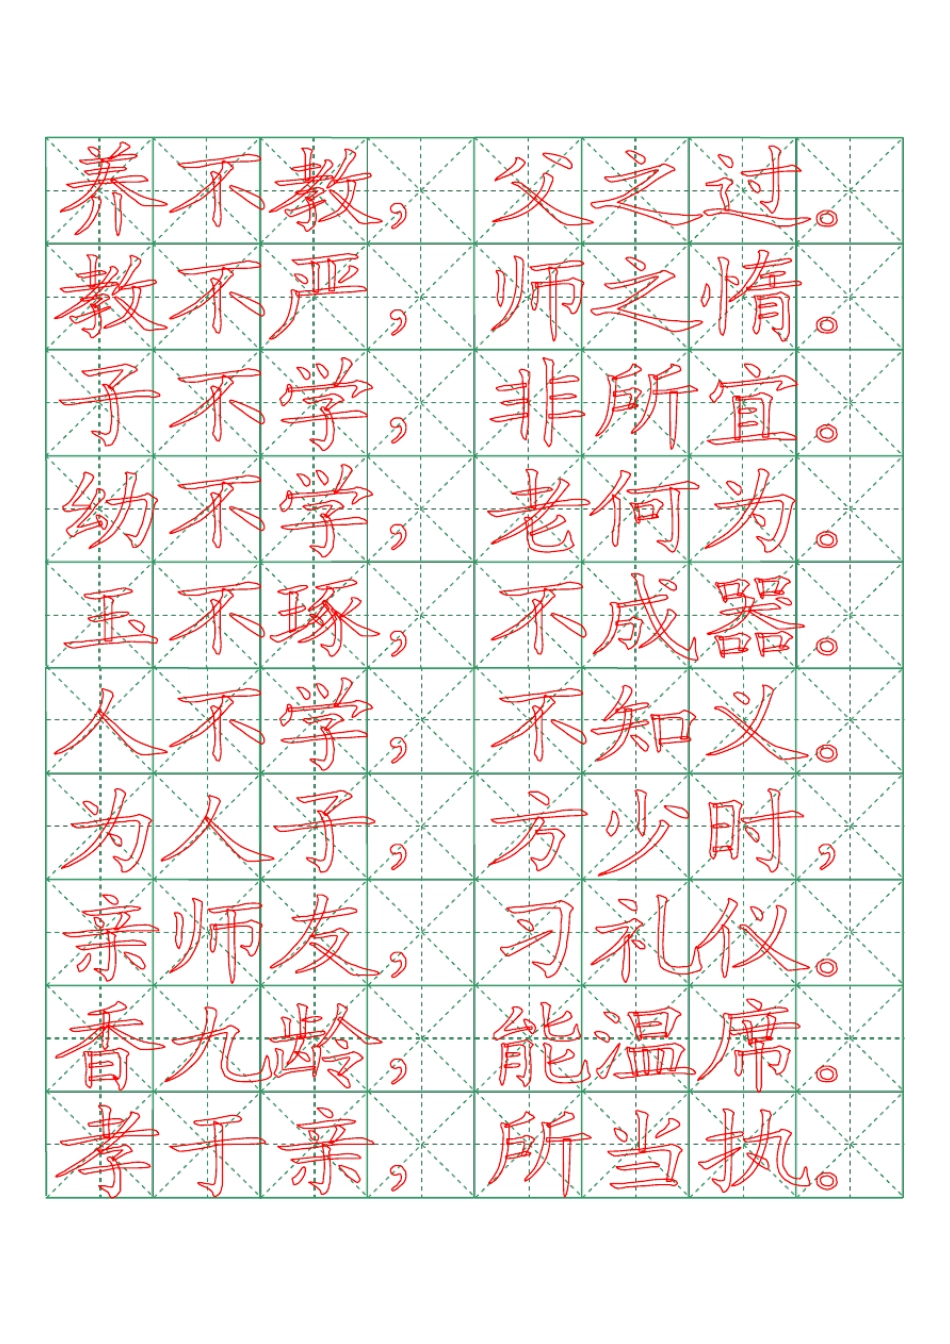 养不教，父之过。
教不严，师之惰。
子不学，非所宜。
幼不学，老何为。
玉不琢，不成器。
人不学，不知义。
为人子，方少时，
亲师友，习礼仪。
香九龄，能温席。
孝于亲，所当执。